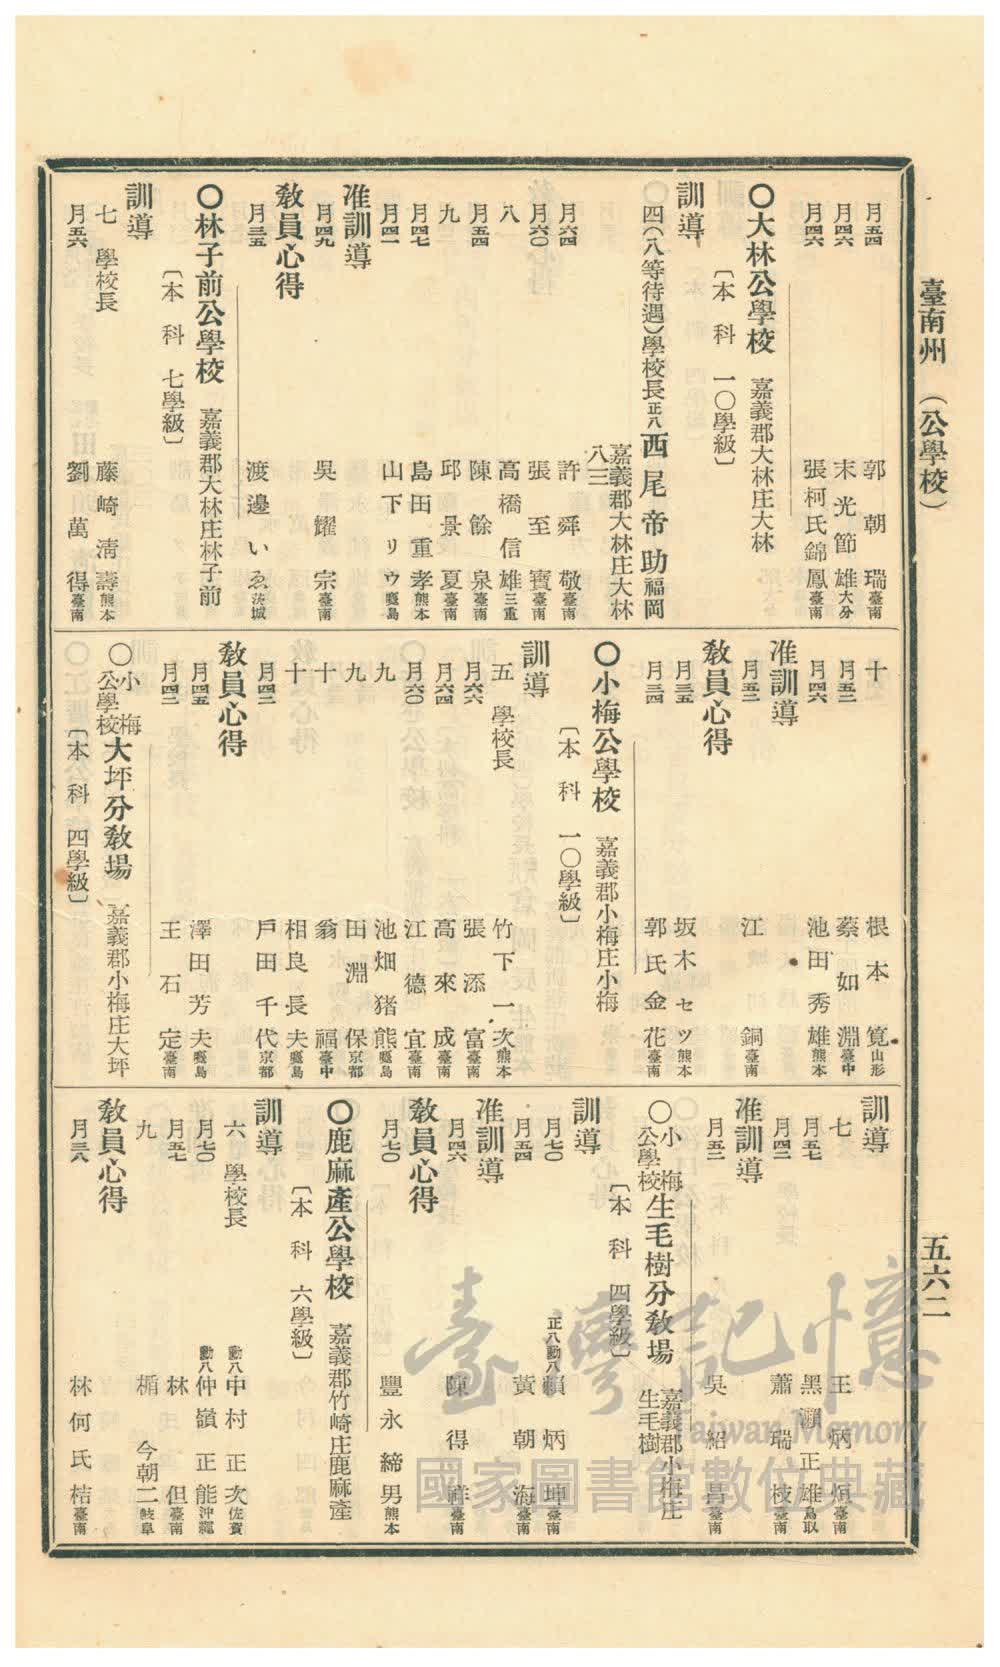 臺南州 （公學校） 五六二
月五四 郭朝瑞 臺南
月四六 末光節雄 大分
月四六 張柯氏錦鳳 臺南
〇大林公學校 嘉義郡大林庄大林
〔本科 一〇學級〕
訓導
四(八等待遇)學校長 正八 西尾帝助 福岡
嘉義郡大林庄大林
八三
月六四 許舜敬 臺南
月六〇 張至寶 臺南
八 高橋信雄 三重
月五四 陳餘泉 臺南
九 邱景夏 臺南
月四七 島田重孝 熊本
月四一 山下リウ 鹿兒島
准訓導
月四九 吳耀宗 臺南
教員心得
月三五 渡邊いゑ 茨城
〇林子前公學校 嘉義郡大林庄林子前
〔本科 七學級〕
訓導
七 學校長 藤崎淸壽 熊本
月五六 劉萬得 臺南
十 根本筧 山形
月五二 蔡如淵 臺中
月四六 池田秀雄 熊本
准訓導
月五二 江銅 臺南
教員心得
月三五 坂木セツ 熊本
月三四 郭氏金花 臺南
〇小梅公學校 嘉義郡小梅庄小梅
〔本科 一〇學級〕
訓導
五 學校長 竹下一次 熊本
月六六 張添富 臺南
月六四 高來成 臺南
月六〇 江德宜 臺南
九 池畑猪熊 鹿兒島
九 田淵保 京都
十 翁福 臺中
十 相良長夫 鹿兒島
月四三 戶田千代 京都
教員心得
月四五 澤田芳夫 鹿兒島
月四二 王石定 臺南
〇小梅公學校大坪分教場 嘉義郡小梅庄大坪
〔本科 四學級〕
訓導
七 王炳垣 臺南
月五七 黑瀨正雄 鳥取
月四二 蕭瑞枝 臺南
准訓導
月五二 吳紹昌 臺南
〇小梅公學校生毛樹分教場 嘉義郡小梅庄生毛樹
〔本科 四學級〕
訓導
月七〇 正八勳八 賴炳坤 臺南
月五四 黃朝海 臺南
准訓導
月四六 陳得祥 臺南
教員心得
月七〇 豐永締男 熊本
〇鹿麻產公學校 嘉義郡竹崎庄鹿麻產
〔本科 六學級〕
訓導
六 學校長 勳八 中村正次 佐賀
月七〇 勳八 仲嶺正能 沖繩
月五七 林但 臺南
九 楯今朝二 岐阜
教員心得
月三八 林何氏桔 臺南
臺灣記憶
Taiwan Memory
國家圖書館數位典藏